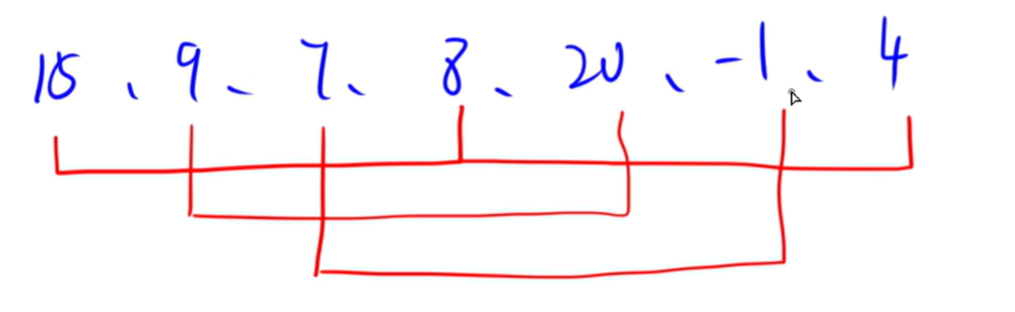 15、9、7、8、20、-1、4